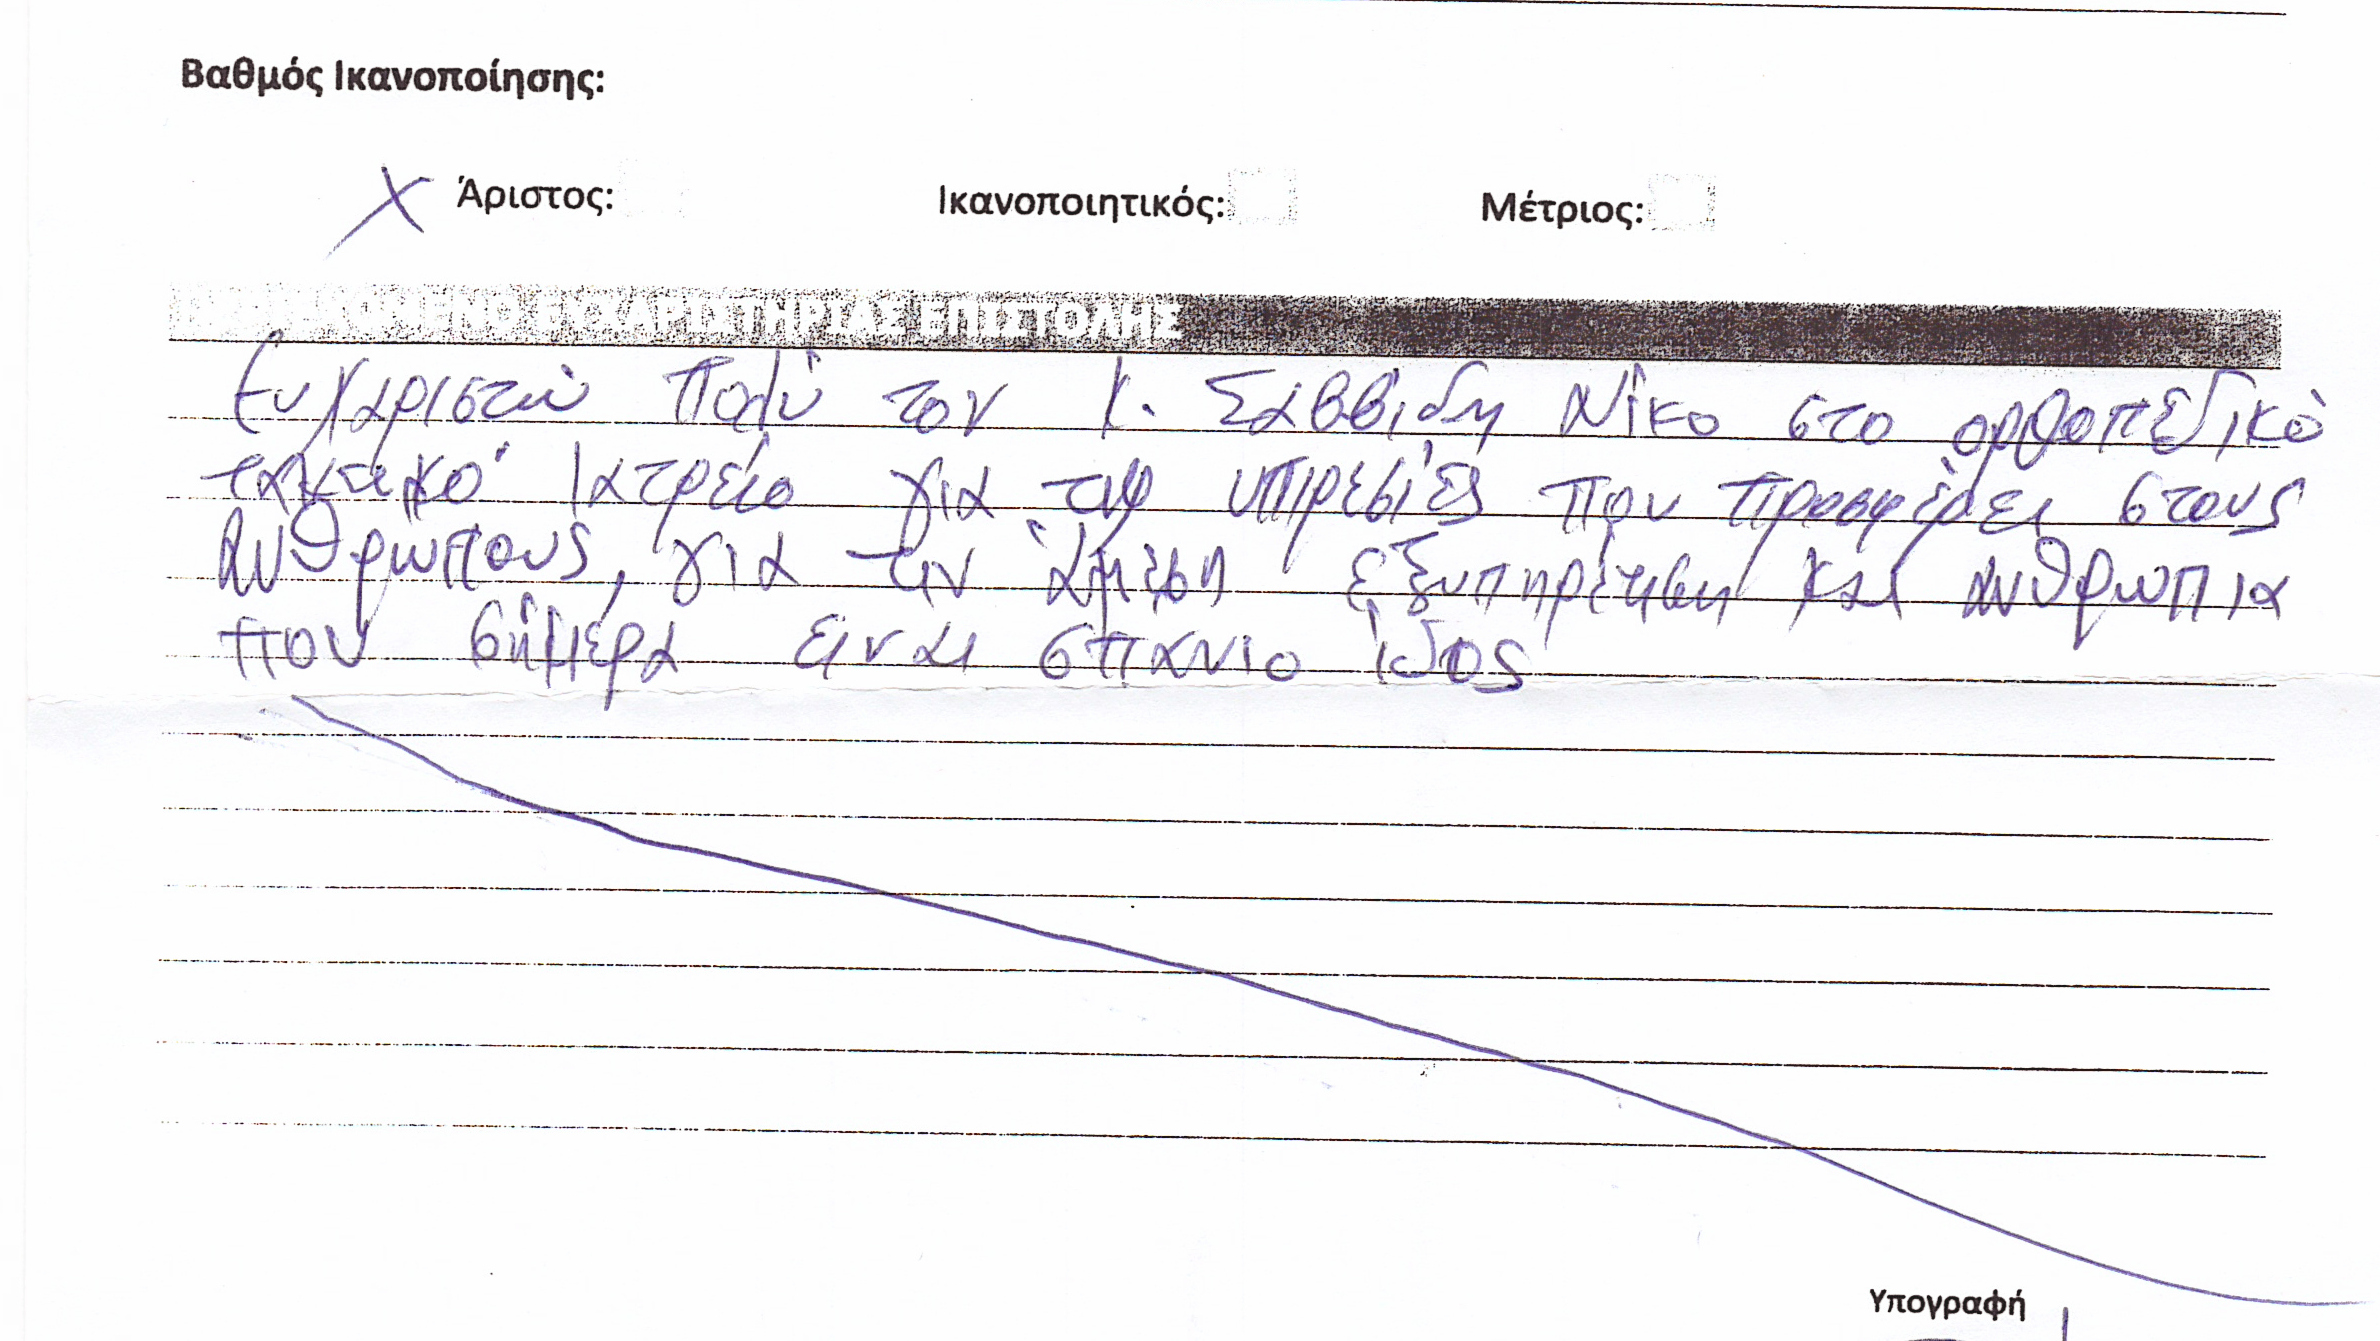 Βαθμός Ικανοποίησης:
X Άριστος: Ικανοποιητικός: Μέτριος:
ΠΕΡΙΕΧΟΜΕΝΟ ΕΥΧΑΡΙΣΤΗΡΙΑΣ ΕΠΙΣΤΟΛΗΣ
Ευχαριστώ πολύ τον κ. Σαββίδη Νίκο στο ορθοπεδικό
τακτικό ιατρείο για τις υπιρεσίες που προσφέρει στους
ανθρώπους, για την άμεση εξυπηρέτηση και ανθρωπια
που σήμερα ειναι σπανιο ίδος
Υπογραφή